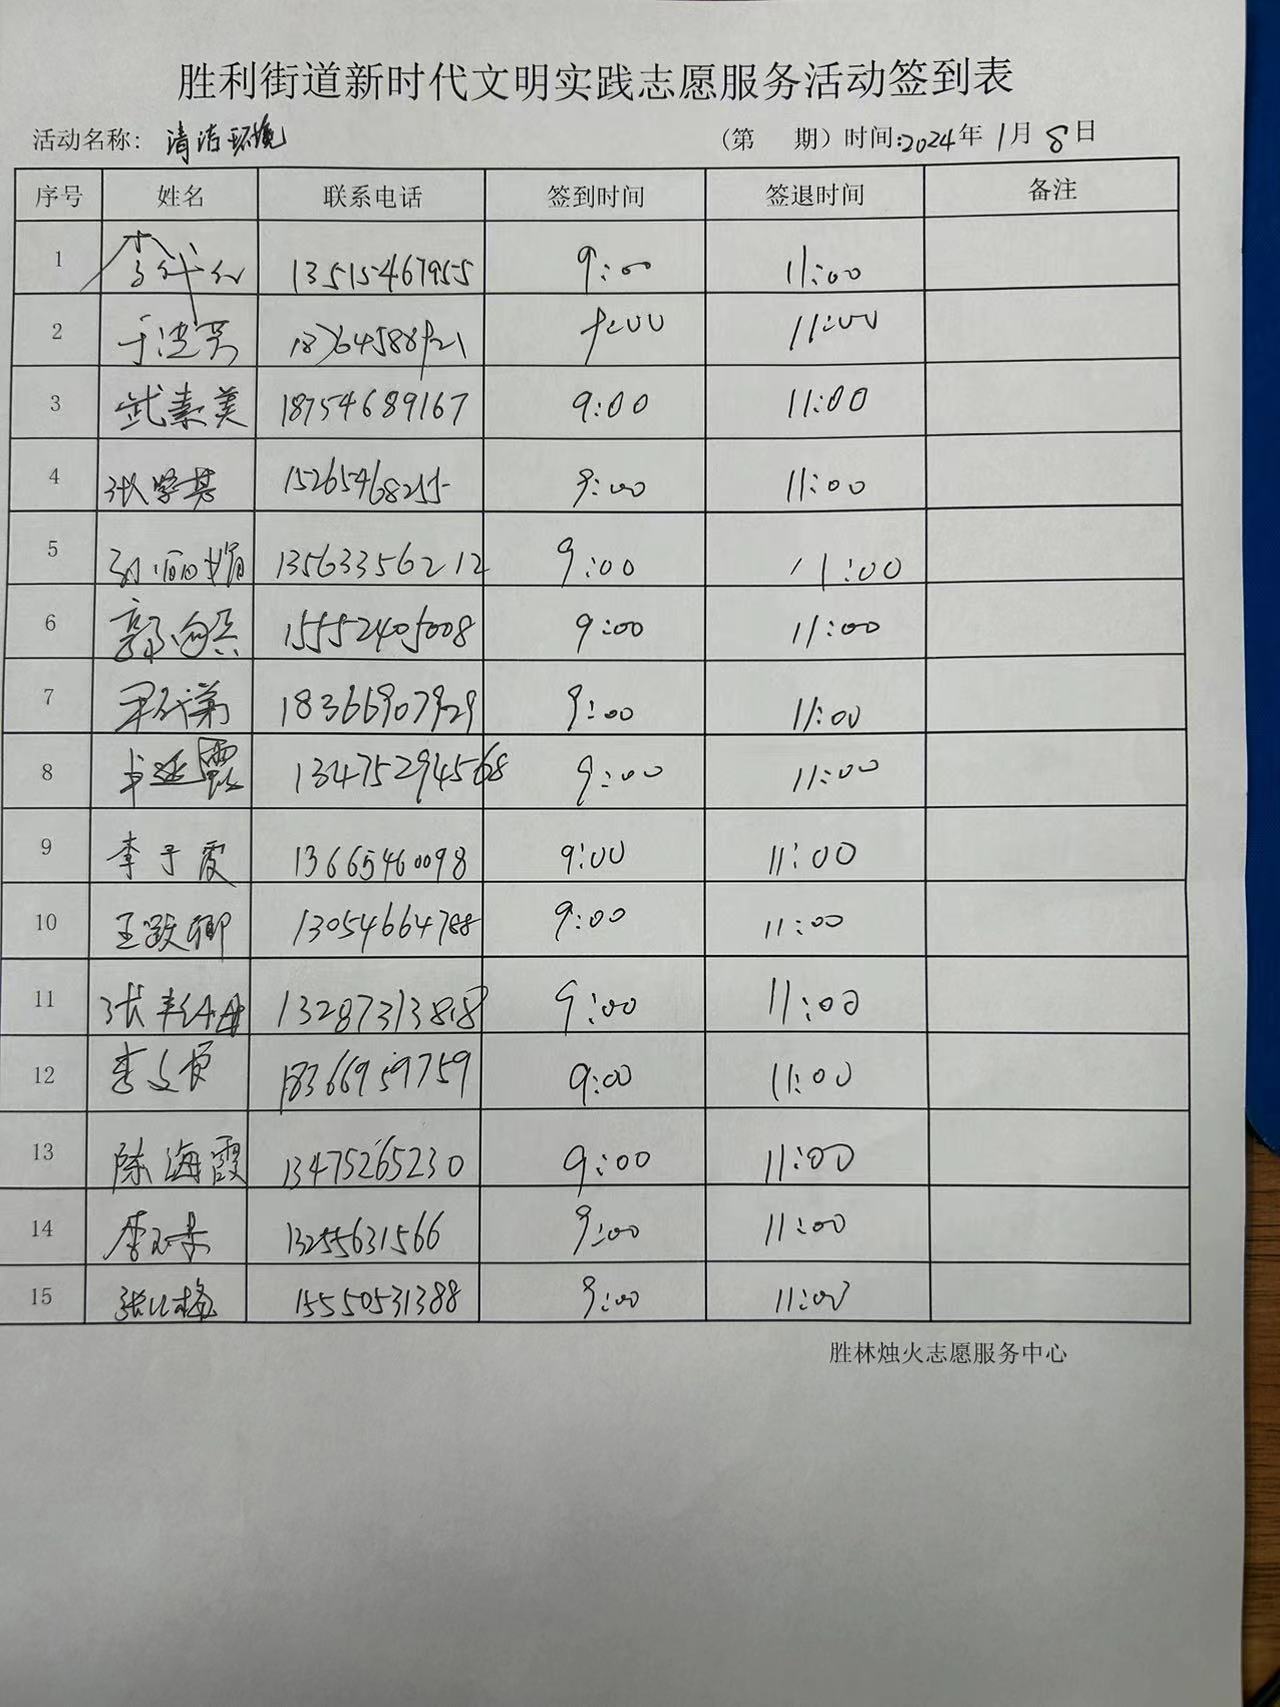 胜利街道新时代文明实践志愿服务活动签到表
活动名称：清洁环境 （第 期）时间:2024年1月8日
序号 姓名 联系电话 签到时间 签退时间 备注
1 13515467955 9:00 11:00
2 于洪芳 9:00 11:00
3 武素美 18754689167 9:00 11:00
4 张学其 15265468255 9:00 11:00
5 孙丽娟 13563356212 9:00 11:00
6 15552405008 9:00 11:00
7 18366907929 9:00 11:00
8 13475294568 9:00 11:00
9 李于霞 13665460098 9:00 11:00
10 王跃卿 13054664788 9:00 11:00
11 13287313818 9:00 11:00
12 18366959759 9:00 11:00
13 陈海霞 13475265230 9:00 11:00
14 13255631566 9:00 11:00
15 15550531388 9:00 11:00
胜林烛火志愿服务中心